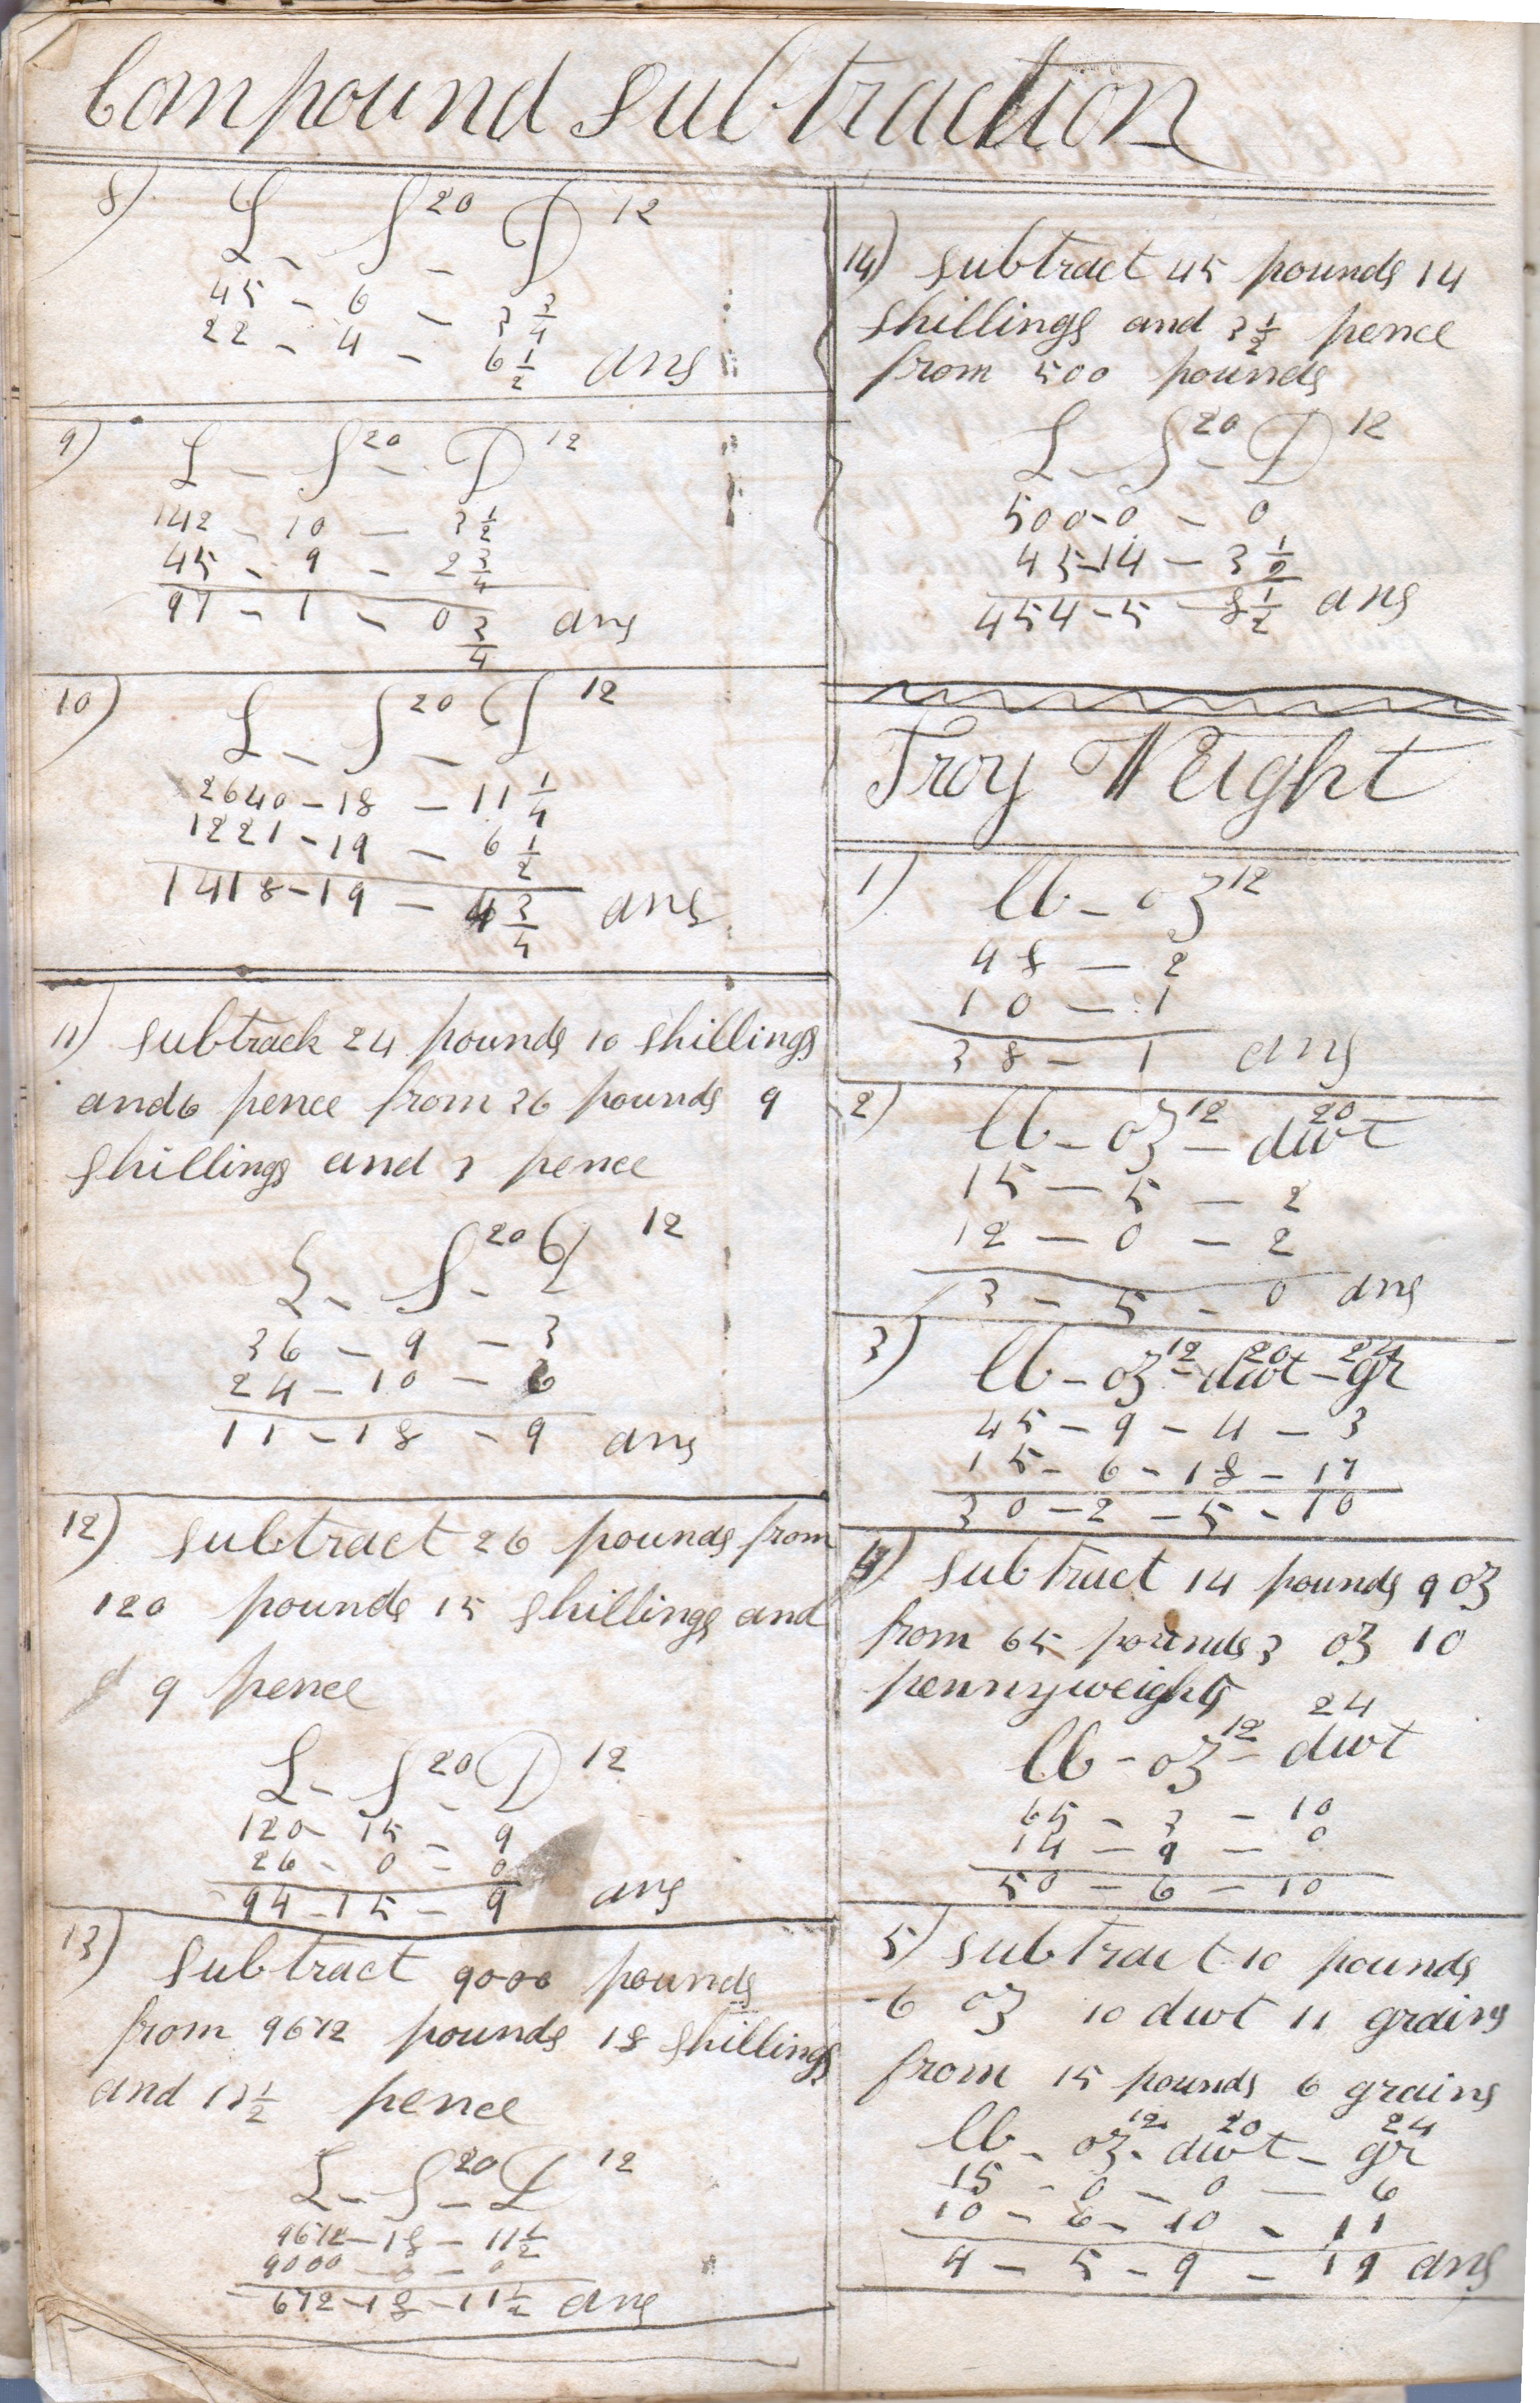 Compound Subtraction
8)
L - S 20 - D 12
45 - 6 - 3 3/4
22 - 4 - 6 1/2 ans
9)
L - S 20 - D 12
142 - 10 - 3 1/2
45 - 9 - 2 3/4
97 - 1 - 0 3/4 ans
10)
L - S 20 - D 12
2640 - 18 - 11 1/4
1221 - 19 - 6 1/2
1418 - 19 - 4 3/4 ans
11) subtrack 24 pounds 10 shillings
and 6 pence from 36 pounds 9
shillings and 3 pence
L - S 20 - D 12
36 - 9 - 3
24 - 10 - 6
11 - 18 - 9 ans
12) subtract 26 pounds from
120 pounds 15 shillings and
9 pence
L - S 20 - D 12
120 - 15 - 9
26 - 0 - 0
94 - 15 - 9 ans
13) subtract 9000 pounds
from 9672 pounds 18 shillings
and 11 1/2 pence
L - S 20 - D 12
9672 - 18 - 11 1/2
9000 - 0 - 0
672 - 18 - 11 1/2 ans
14) subtract 45 pounds 14
shillings and 3 1/2 pence
from 500 pounds
L - S 20 - D 12
500 - 0 - 0
45 - 14 - 3 1/2
454 - 5 - 8 1/2 ans
Troy Weight
1)
lb - oz 12
48 - 2
10 - 1
38 - 1 ans
2)
lb - oz 12 - dwt 20
15 - 5 - 2
12 - 0 - 2
3 - 5 - 0 ans
3)
lb - oz 12 - dwt 20 - gr 24
45 - 9 - 4 - 3
15 - 6 - 18 - 17
30 - 2 - 5 - 10
4) subtract 14 pounds 9 oz
from 65 pounds 3 oz 10
pennyweights
lb - oz 12 - dwt 24
65 - 3 - 10
14 - 9 - 0
50 - 6 - 10
5) subtract 10 pounds
6 oz 10 dwt 11 grains
from 15 pounds 6 grains
lb - oz 12 - dwt 20 - gr 24
15 - 0 - 0 - 6
10 - 6 - 10 - 11
4 - 5 - 9 - 19 ans